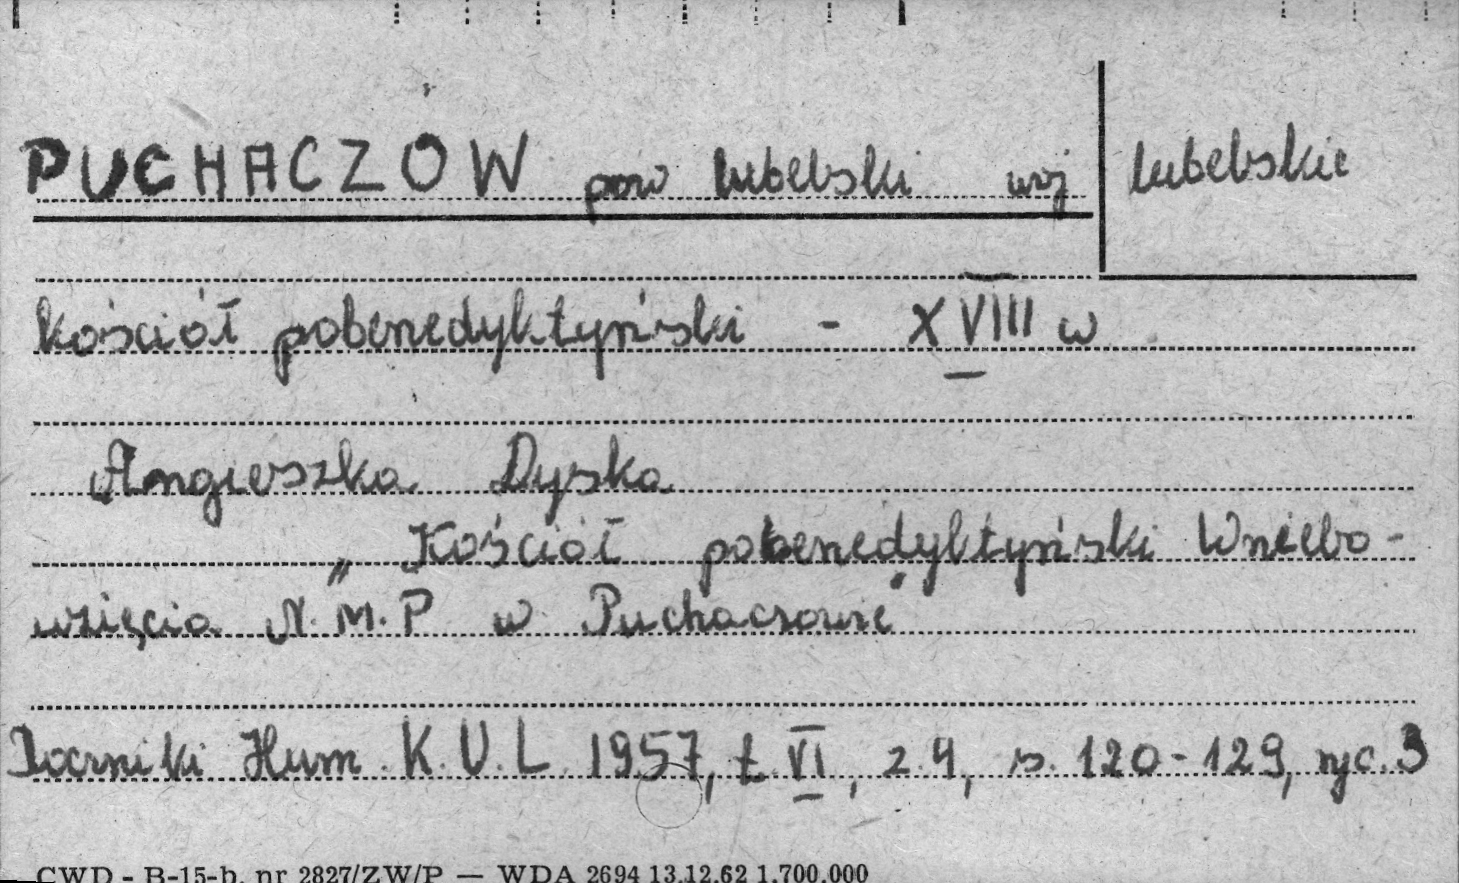 PUCHACZÓW pow lubelski woj lubelskie
Kościół pobenedyktyński - XVIII w
Angieszka Dyska
„Kościół pobenedyktyński Wniebo-
wzięcia N.M.P w Puchaczowie"
Roczniki Hum. K.U.L. 1957, t. VI, z. 4, s. 120-129, ryc. 3
CWD - B-15-b. nr 2827/ZW/P — WDA 2694 13.12.62 1.700.000